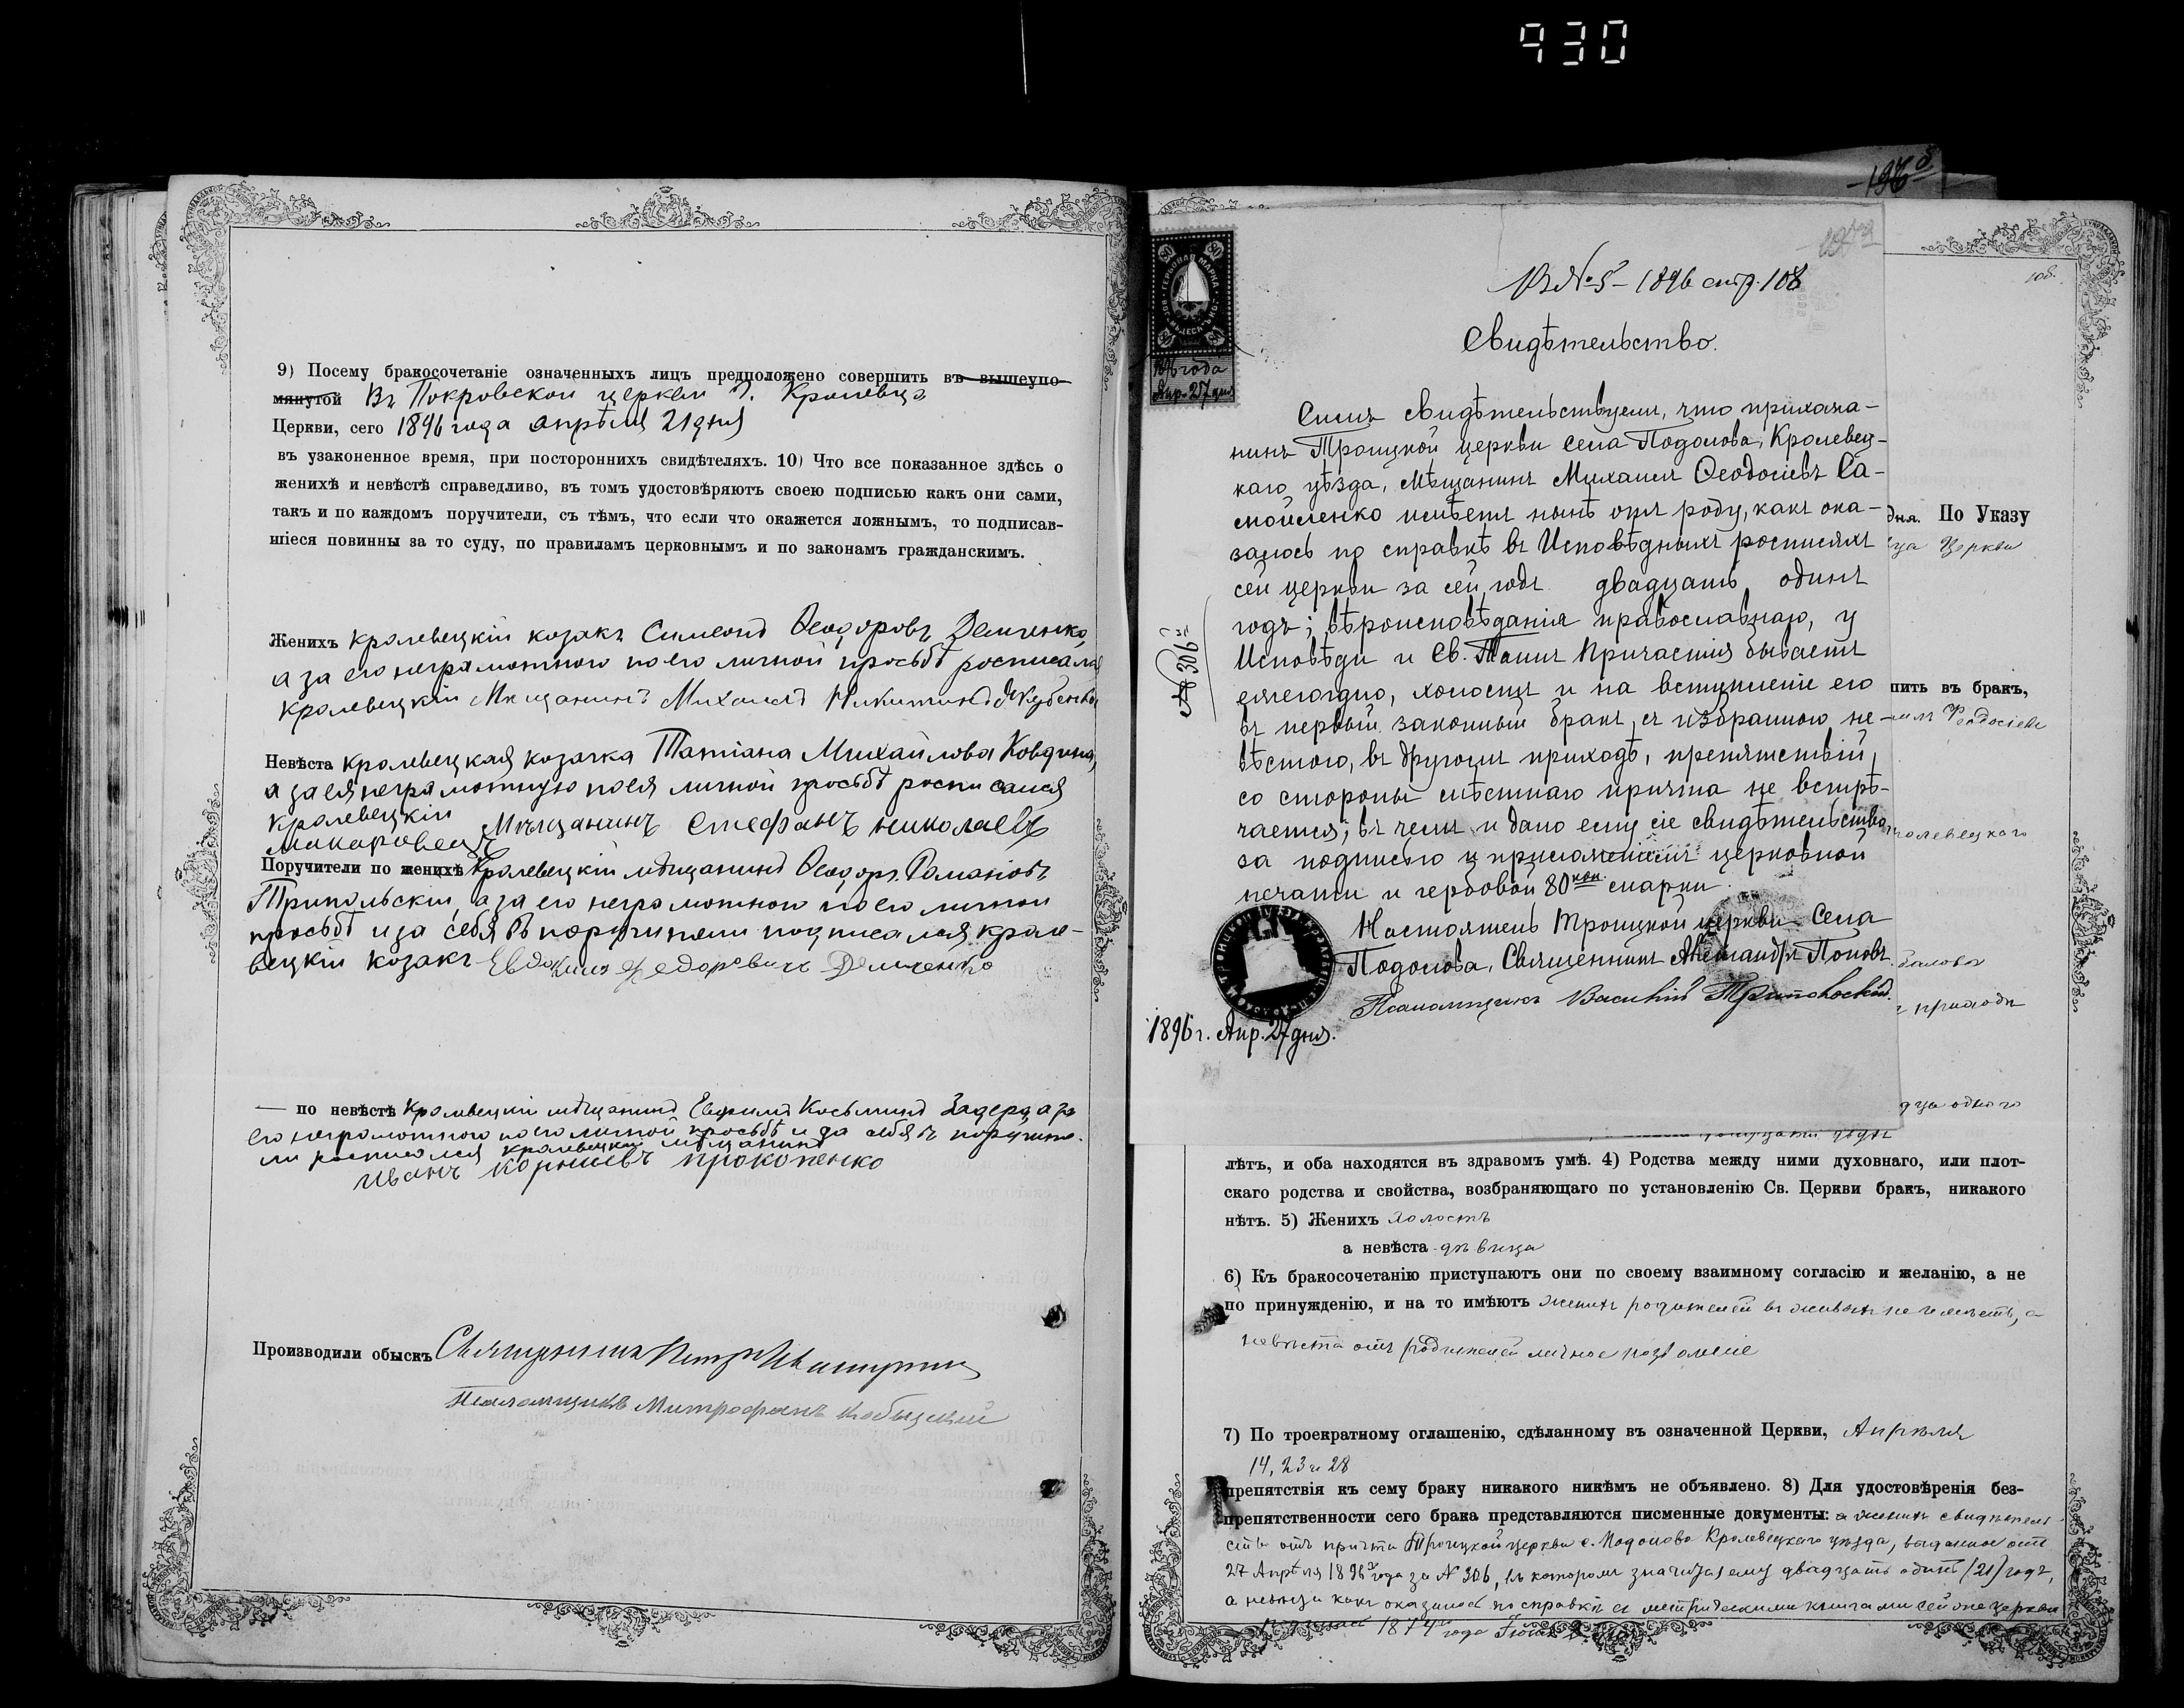 930
9) Посему бракосочетаніе означенныхъ лицъ предположено совершить въ вышеупо-
мянутой Въ Покровской церкви г. Кролевца
Церкви, сего 1896 года апрѣля 21 дня
въ узаконенное время, при постороннихъ свидѣтеляхъ. 10) Что все показанное здѣсь о
женихѣ и невѣстѣ справедливо, въ томъ удостовѣряютъ своею подписью какъ они сами,
такъ и по каждомъ поручители, съ тѣмъ, что если что окажется ложнымъ, то подписав-
шіеся повинны за то суду, по правиламъ церковнымъ и по законамъ гражданскимъ.
Женихъ кролевецкій козакъ Симеонъ Ѳеодоровъ Демченко,
а за его неграмотного по его личной просьбѣ росписался
кролевецкій Мещанинъ Михаилъ Никитинъ
Невѣста кролевецкая козачка Татіана Михайлова
а за ея неграмотную по ея личной просьбѣ росписался
кролевецкій
Мѣщанинъ Стефанъ Николаевъ
Макаровецъ
Поручители по женихѣ Кролевецкій мѣщанинъ Ѳеодоръ Романовъ
Трипольскій, а за его неграмотного по его личной
просьбѣ и за себя въ поручители подписался кроле-
вецкій козакъ Евдокимъ Федоровичъ Демченко
— по невѣстѣ Кролевецкій мѣщанинъ Евфимъ Косьминъ Задера, а за
его неграмотного по его личной просьбѣ и за себя въ поручите-
ли росписался кролевецкій мѣщанинъ
Иванъ Корніевъ Прокопенко
Производили обыскъ Священникъ Петръ
Псаломщикъ Митрофанъ
В № 5 - 1896 стр. 108
Свидѣтельство.
1896 года
Апр. 27 дня
Симъ свидѣтельствуемъ, что прихожа-
нинъ Троицкой церкви села Подолова, Кролевец-
каго уѣзда, мѣщанинъ Михаилъ Ѳеодосіевъ Са-
мойленко имѣетъ нынѣ отъ роду, какъ ока-
залось по справкѣ въ Исповѣдныхъ росписяхъ
сей церкви за сей годъ двадцать одинъ
годъ; вѣроисповѣданія православнаго, у
Исповѣди и Св. Таинъ Причастія бываетъ
ежегодно, холостъ и на вступленіе его
въ первый законный бракъ, съ избранною не-
вѣстою, въ другомъ приходѣ, препятствій,
со стороны мѣстнаго причта не встрѣ-
чается; въ чемъ и дано ему сіе свидѣтельство
за подписью и приложеніемъ церковной
печати и гербовой 80 коп. марки.
№ 306
Настоятель Троицкой церкви села
Подолова, Священникъ Александръ Поповъ.
Псаломщикъ Василій
1896 г. Апр. 27 дня.
дня. По Указу
Церкви
пить въ бракъ,
Ѳеодосіевъ
приходѣ
одного
лѣтъ, и оба находятся въ здравомъ умѣ. 4) Родства между ними духовнаго, или плот-
скаго родства и свойства, возбраняющаго по установленію Св. Церкви бракъ, никакого
нѣтъ. 5) Женихъ холостъ
а невѣста дѣвица
6) Къ бракосочетанію приступаютъ они по своему взаимному согласію и желанію, а не
по принужденію, и на то имѣютъ женихъ родителей въ живыхъ не имѣетъ, а
невѣста отъ родителей личное позволеніе
7) По троекратному оглашенію, сдѣланному въ означенной Церкви, Апрѣля
14, 23 и 28
препятствія къ сему браку никакого никѣмъ не объявлено. 8) Для удостовѣренія без-
препятственности сего брака представляются писменные документы: а женихъ свидѣтель-
ство отъ причта Троицкой церкви с. Подолова Кролевецкаго уѣзда, выданное отъ
27 Апрѣля 1896 года за № 306, въ которомъ значится ему двадцать одинъ (21) годъ,
а невѣста какъ оказалось по справкѣ съ метрическими книгами сей же церкви
1874 года